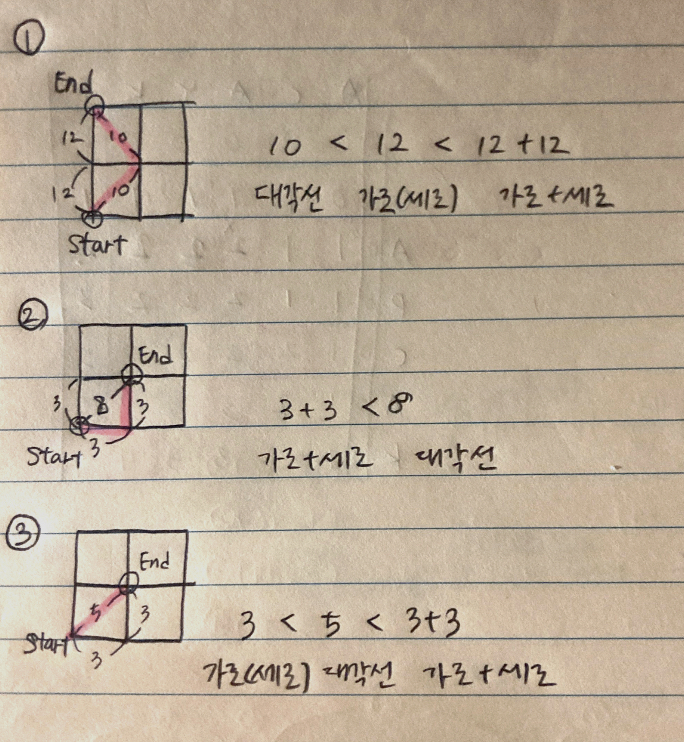 ①
End
12 10
10 < 12 < 12+12
12 10
대각선 가로(세로) 가로+세로
Start
②
End
3 8 3
3+3 < 8
Start 3
가로+세로 대각선
③
End
5 3
3 < 5 < 3+3
Start 3
가로(세로) 대각선 가로+세로